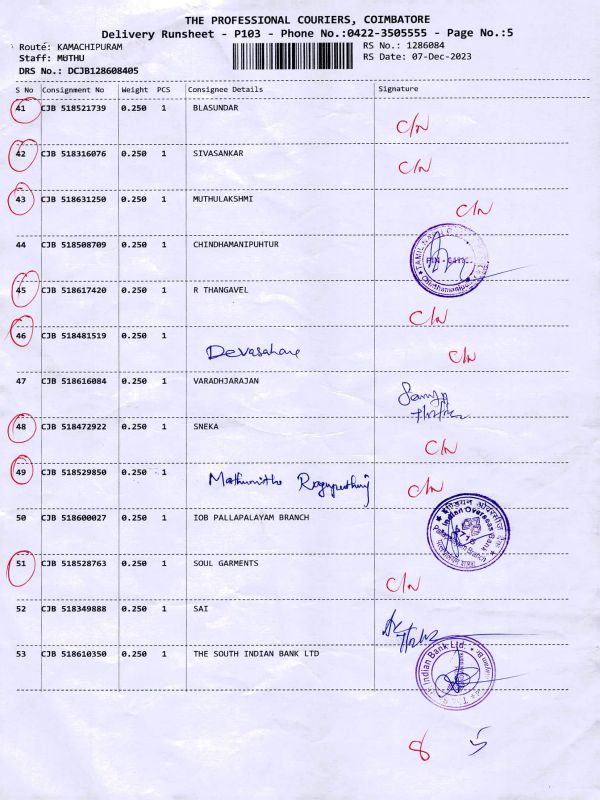 THE PROFESSIONAL COURIERS, COIMBATORE
Delivery Runsheet - P103 - Phone No.:0422-3505555 - Page No.:5
Route: KAMACHIPURAM RS No.: 1286084
Staff: MUTHU RS Date: 07-Dec-2023
DRS No.: DCJB128608405
S No Consignment No Weight PCS Consignee Details Signature
41 CJB 518521739 0.250 1 BLASUNDAR
C/N
42 CJB 518316076 0.250 1 SIVASANKAR
C/N
43 CJB 518631250 0.250 1 MUTHULAKSHMI
C/N
44 CJB 518508709 0.250 1 CHINDHAMANIPUHTUR
TAMIL NADU
45 CJB 518617420 0.250 1 R THANGAVEL
C/N
46 CJB 518481519 0.250 1
Devasahane C/N
47 CJB 518616084 0.250 1 VARADHJARAJAN
48 CJB 518472922 0.250 1 SNEKA
C/N
49 CJB 518529850 0.250 1 C/N
50 CJB 518600027 0.250 1 IOB PALLAPALAYAM BRANCH
Indian Overseas Bank
2715
51 CJB 518528763 0.250 1 SOUL GARMENTS
C/N
52 CJB 518349888 0.250 1 SAI
53 CJB 518610350 0.250 1 THE SOUTH INDIAN BANK LTD
Indian Bank Ltd.
8 5